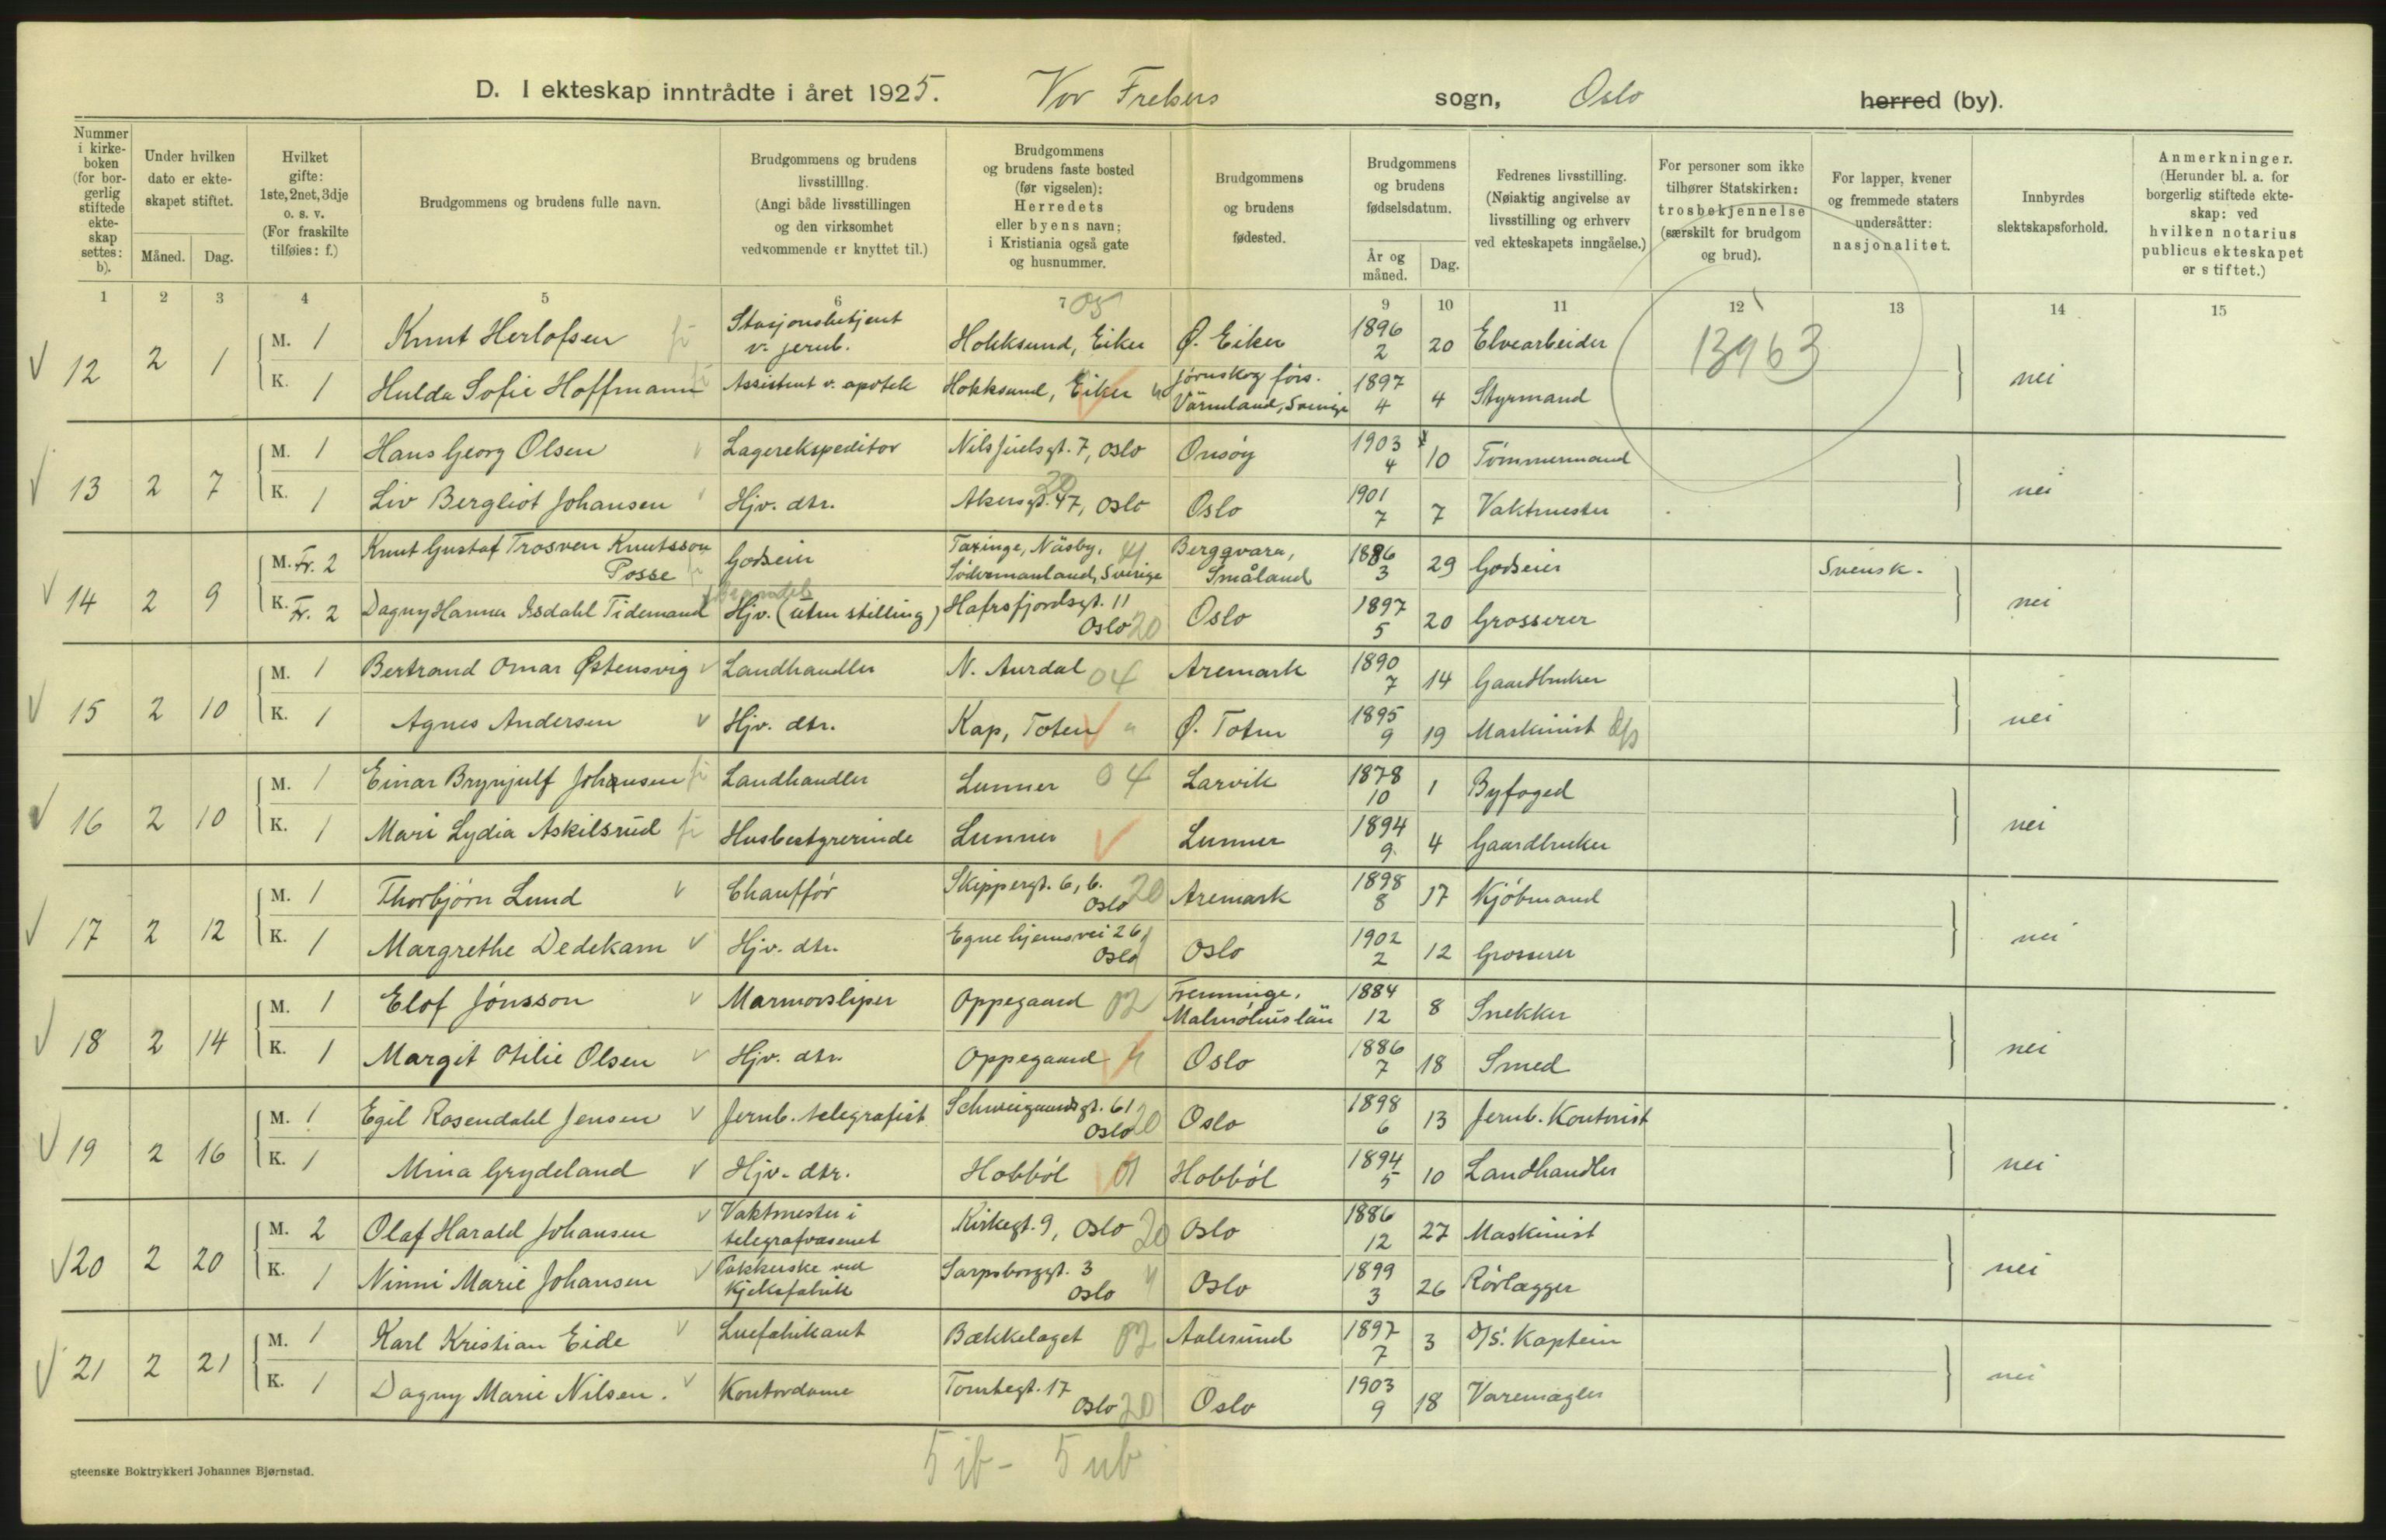 D. I ekteskap inntrådte i året 1925. Vor Frelsers sogn, Oslo herred (by).
Nummer i kirkeboken (for borgerlig stiftede ekteskap settes: b).
Under hvilken dato er ekteskapet stiftet.
Måned. Dag.
Hvilket gifte: 1ste, 2net, 3dje o. s. v. (For fraskilte tilføies: f.)
Brudgommens og brudens fulle navn.
Brudgommens og brudens livsstilling. (Angi både livsstillingen og den virksomhet vedkommende er knyttet til.)
Brudgommens og brudens faste bosted (før vigselen): Herredets eller byens navn; i Kristiania også gate og husnummer.
Brudgommens og brudens fødested.
Brudgommens og brudens fødselsdatum.
År og måned. Dag.
Fedrenes livsstilling. (Nøiaktig angivelse av livsstilling og erhverv ved ekteskapets inngåelse.)
For personer som ikke tilhører Statskirken: trosbekjennelse (særskilt for brudgom og brud).
For lapper, kvener og fremmede staters undersåtter: nasjonalitet.
Innbyrdes slektskapsforhold.
Anmerkninger. (Herunder bl. a. for borgerlig stiftede ekteskap: ved hvilken notarius publicus ekteskapet er stiftet.)
1 2 3 4 5 6 7 9 10 11 12 13 14 15
05
13963
12 2 1 M. 1 Knut Herlofsen Stasjonsbetjent v. jernb. Hokksund, Eiker Ø. Eiker 1896 2 20 Elvearbeider nei
K. 1 Hulda Sofie Hoffmann Assistent v. apotek Hokksund, Eiker Järnskog förs. Värmland, Sverige 1897 4 4 Styrmand
13 2 7 M. 1 Hans Georg Olsen Lagerekspeditør Nils Juelsgt. 7, Oslo Onsøy 1903 4 10 Tømmermand nei
K. 1 Liv Bergliot Johansen Hjv. dtr. Akersgt. 47, Oslo 20 Oslo 1901 7 7 Vaktmester
14 2 9 M. Fr. 2 Knut Gustaf Trosven Knutsson Posse Godseier Taxinge, Näsby, Södermanland, Sverige Bergqvara, Småland 1886 3 29 Godseier Svensk. nei
K. Fr. 2 Dagny Hanna Isdahl Tidemand Hjv. (uten stilling) Hafrsfjordsgt. 11 Oslo 20 Oslo 1897 5 20 Grosserer
15 2 10 M. 1 Bertrand Omar Østensvig Landhandler N. Aurdal 04 Aremark 1890 7 14 Gaardbruker nei
K. 1 Agnes Andersen Hjv. dtr. Kap, Toten Ø. Toten 1895 9 19 Maskinist
16 2 10 M. 1 Einar Brynjulf Johansen Landhandler Lunner 04 Larvik 1878 10 1 Byfoged nei
K. 1 Mari Lydia Askilsrud Husbestyrerinde Lunner Lunner 1894 9 4 Gaardbruker
17 2 12 M. 1 Thorbjørn Lund Chauffør Skippergt. 6, b. Oslo 20 Aremark 1898 8 17 Kjøbmand nei
K. 1 Margrethe Dedekam Hjv. dtr. Egnehjemsvei 26, Oslo Oslo 1902 2 12 Grosserer
18 2 14 M. 1 Elof Jönsson Marmorsliper Oppegaard 02 Fremminge, Malmöhus län 1884 12 8 Snekker nei
K. 1 Margit Otilie Olsen Hjv. dtr. Oppegaard Oslo 1886 7 18 Smed
19 2 16 M. 1 Egil Rosendahl Jensen Jernb. telegrafist Schweigaardsgt. 61 Oslo 20 Oslo 1898 6 13 Jernb. Kontorist nei
K. 1 Mina Grydeland Hjv. dtr. Hobbøl 01 Hobbøl 1894 5 10 Landhandler
20 2 20 M. 2 Olaf Harald Johansen Vaktmester i telegrafvæsenet Kirkegt. 9, Oslo 20 Oslo 1886 12 27 Maskinist nei
K. 1 Ninni Marie Johansen Pakkerske ved Kjeksfabrik Sarpsborggt. 3 Oslo Oslo 1899 3 26 Rørlægger
21 2 21 M. 1 Karl Kristian Eide Luefabrikant Bækkelaget 02 Aalesund 1897 7 3 D/S. Kaptein nei
K. 1 Dagny Marie Nilsen. Kontordame Tomtegt. 17 Oslo 20 Oslo 1903 9 18 Varemægler
5 ib - 5 ub
gteenske Boktrykkeri Johannes Bjørnstad.